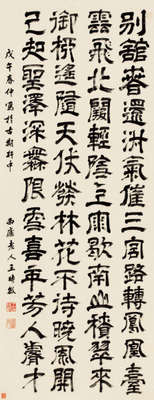 別舘春還淑氣催三宮路轉鳳凰臺
雲飛北闕輕陰散雨歇南山積翠來
御柳遙隨天仗發林花不待曉風開
已知聖澤深無限更喜年芳入睿才
戊午春仲寫於
西廬老人王時敏